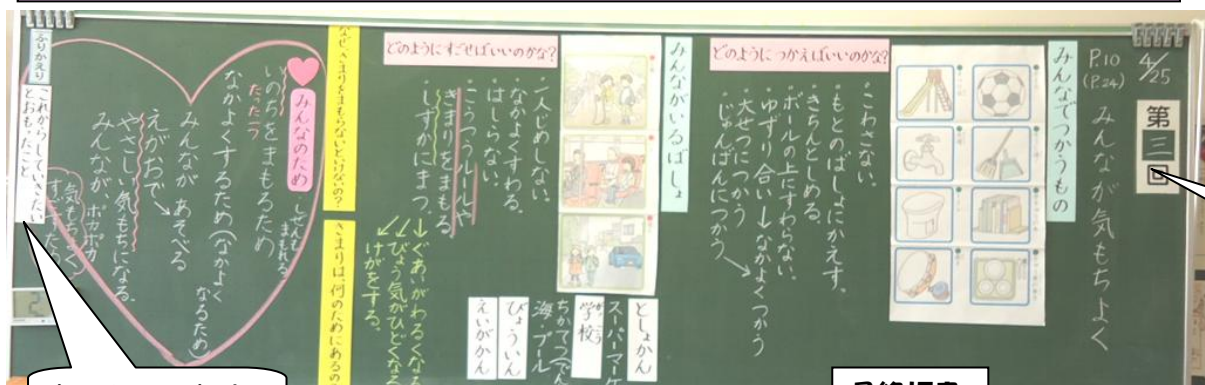 4/25
第三回
P.10
(P.24)
みんなが気もちよく
みんなでつかうもの
どのようにつかえばいいのかな?
・こわさない。
・もとのばしょにかえす。
・きちんとしめる。
・ボールの上にすわらない。
・ゆずり合い→なかよくつかう
・大せつにつかう
・じゅんばんにつかう
みんながいるばしょ
としょかん
スーパーマーケ
学校
ちかてつ(でん
海・プール
びょういん
えいがかん
どのようにすごせばいいのかな?
・一人じめしない。
・なかよくすわる。
・はしらない。
・こうつうルールや
きまりをまもる
・しずかにまつ。
→ぐあいがわるくなる
→びょう気がひどくなる
→けがをする。
なぜ、きまりをまもらないといけないの?
きまりは、何のためにあるの
みんなのため
しぜんも
まもれる
いのちをまもるため
たたこう
なかよくするため(なかよく
なるため)
みんなが あそべる
えがおで
やさしい気もちになる。
みんなが、ポカポカ
気もちよく
すごすため
ふりかえり
これからしていきたい
とおもったこと